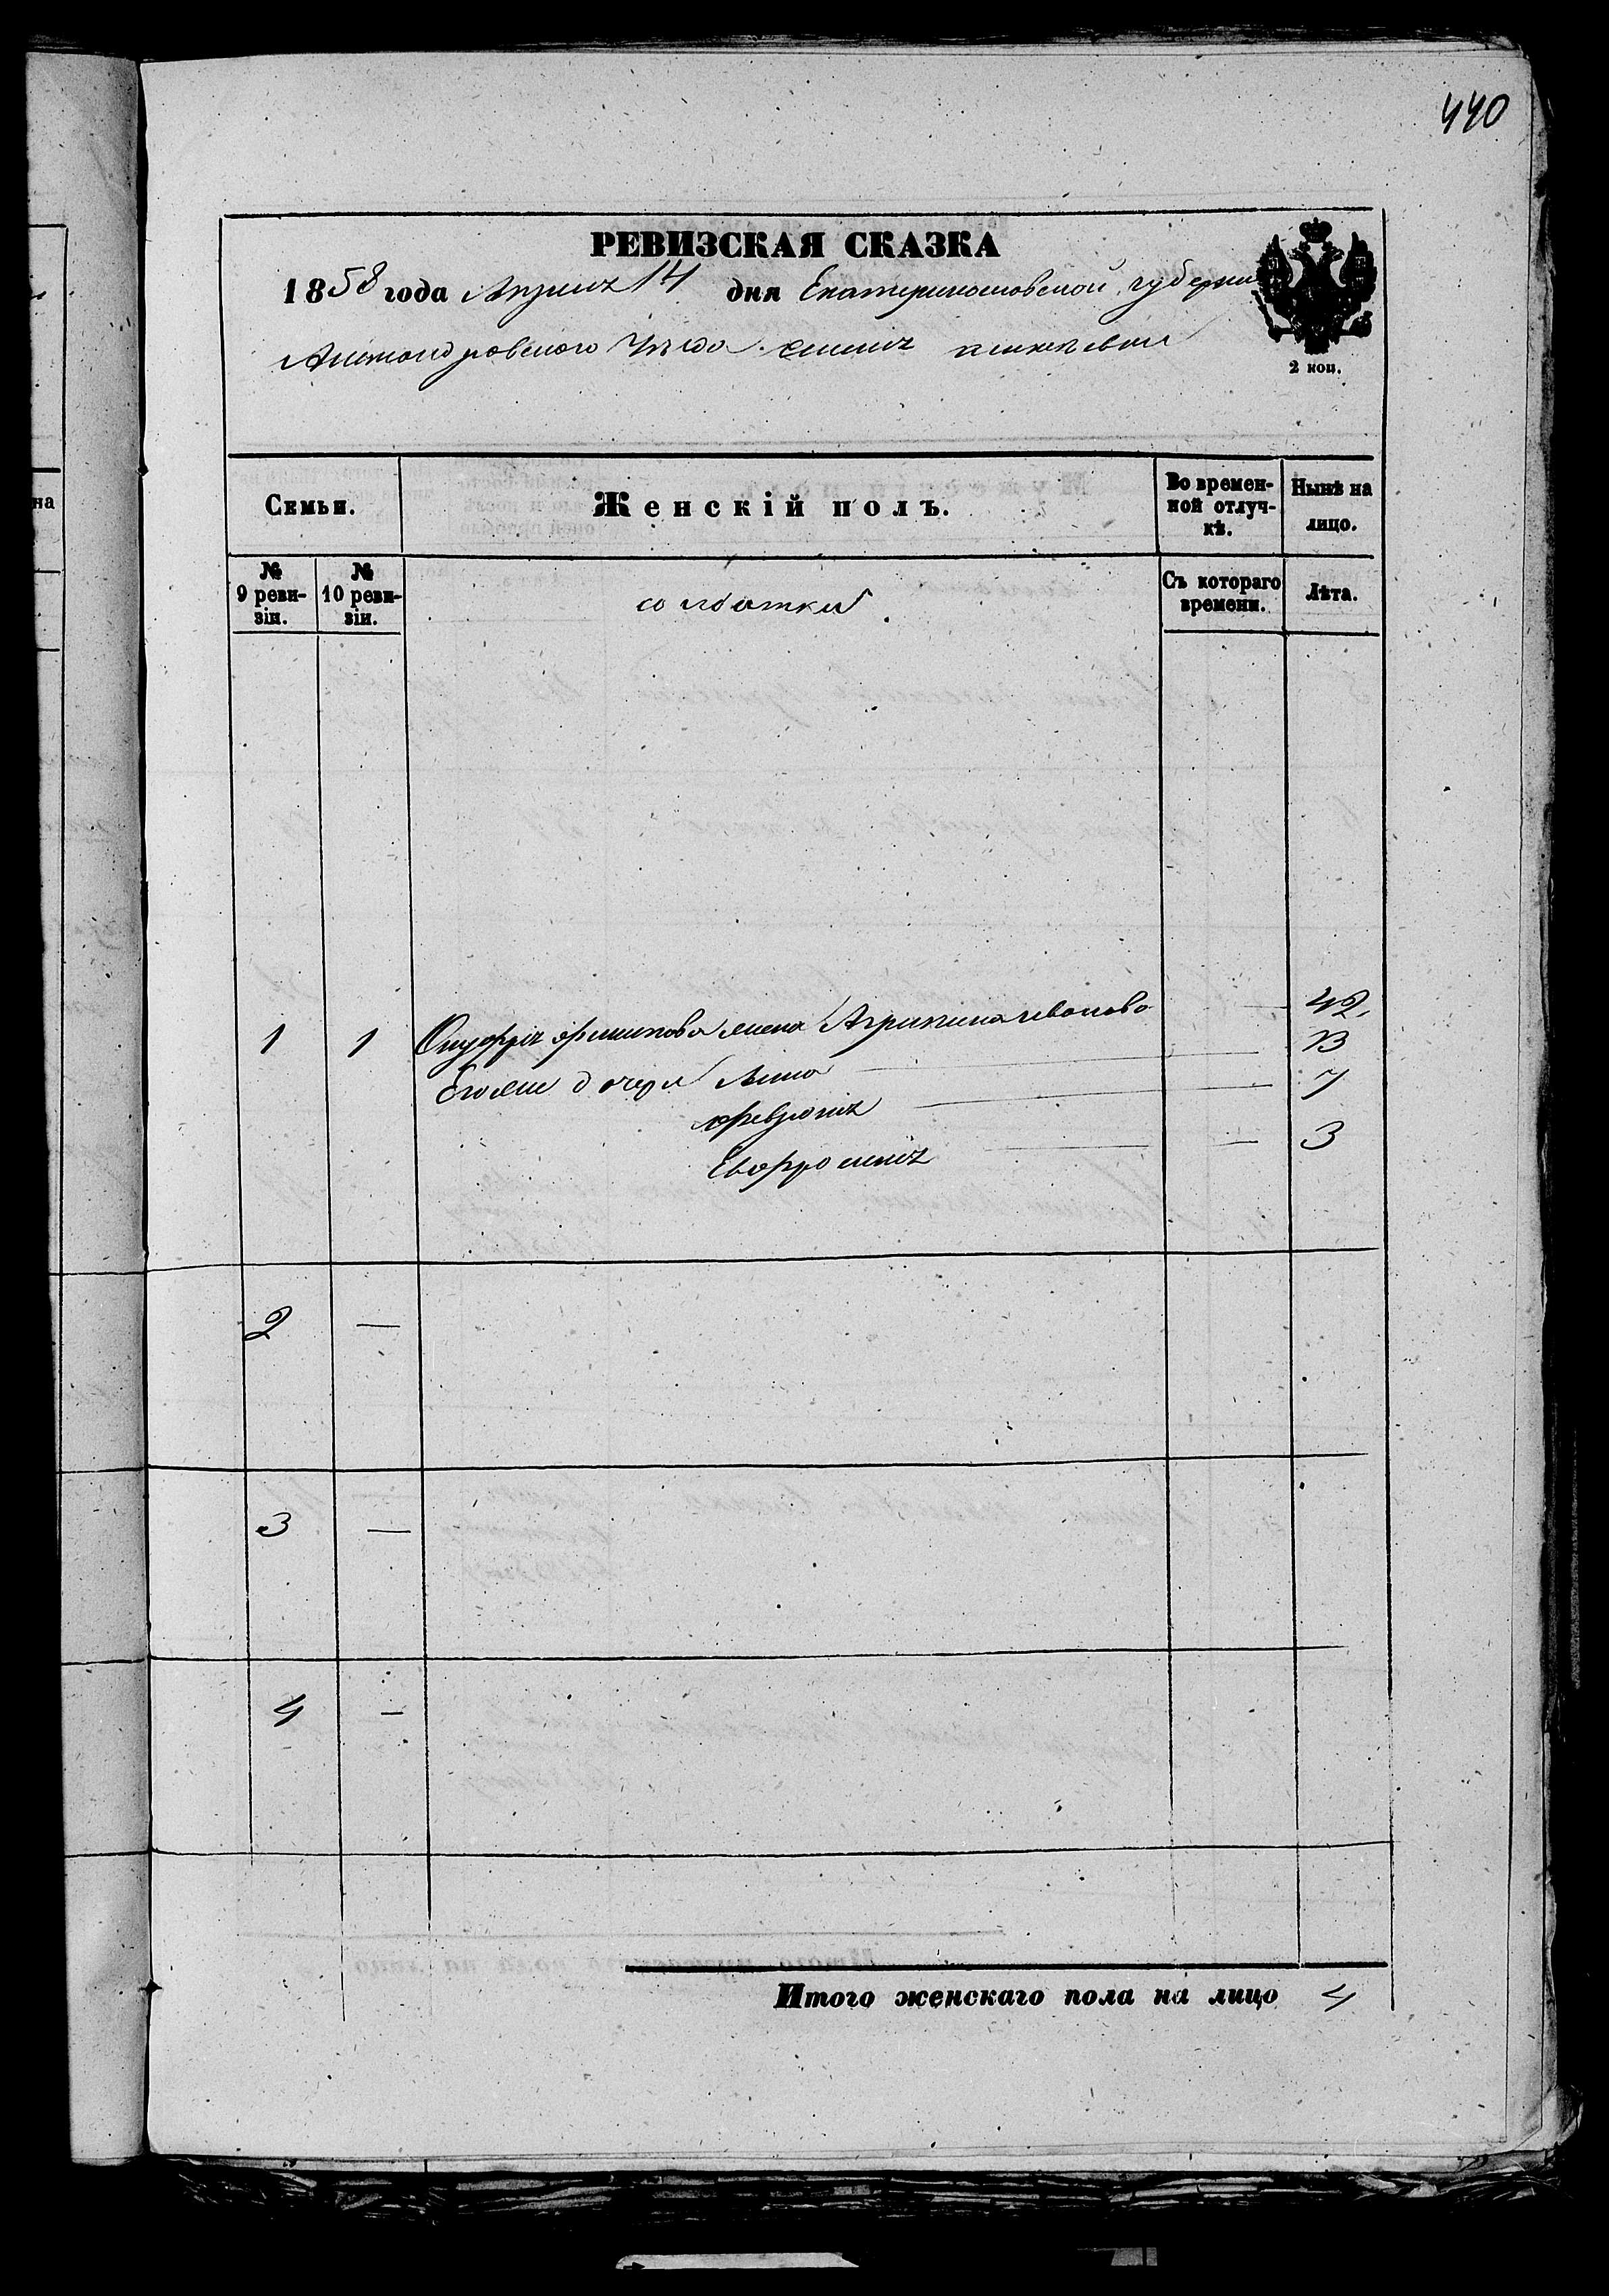 440
РЕВИЗСКАЯ СКАЗКА
1858 года Апреля 14 дня Екатеринославской губернии
Александровского Уезда
2 коп.
на
Семьи.
Женскій полъ.
Во времен-
ной отлуч-
кѣ.
Нынѣ на
лицо.
№
9 реви-
зіи.
№
10 реви-
зіи.
солдатки
Съ котораго
времени.
Лѣта.
1 1 Онуфрія Филипова жена Агрипина Иванова 42
Егоже дочери Анна 13
Феврония 7
Евфросинія 3
2 —
3 —
4 —
Итого женскаго пола на лицо 4